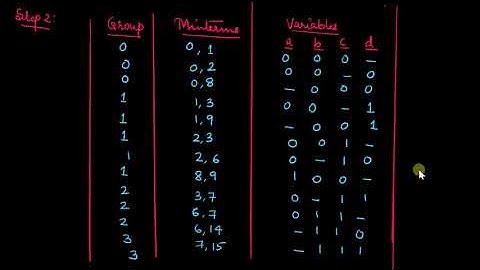 Step 2:
Group Minterms Variables
a b c d
0 0, 1 0 0 0 –
0 0, 2 0 0 – 0
0 0, 8 – 0 0 0
1 1, 3 0 0 – 1
1 1, 9 – 0 0 1
1 2, 3 0 0 1 –
1 2, 6 0 – 1 0
1 8, 9 1 0 0 –
2 3, 7 0 – 1 1
2 6, 7 0 1 1 –
2 6, 14 – 1 1 0
3 7, 15 – 1 1 1
3